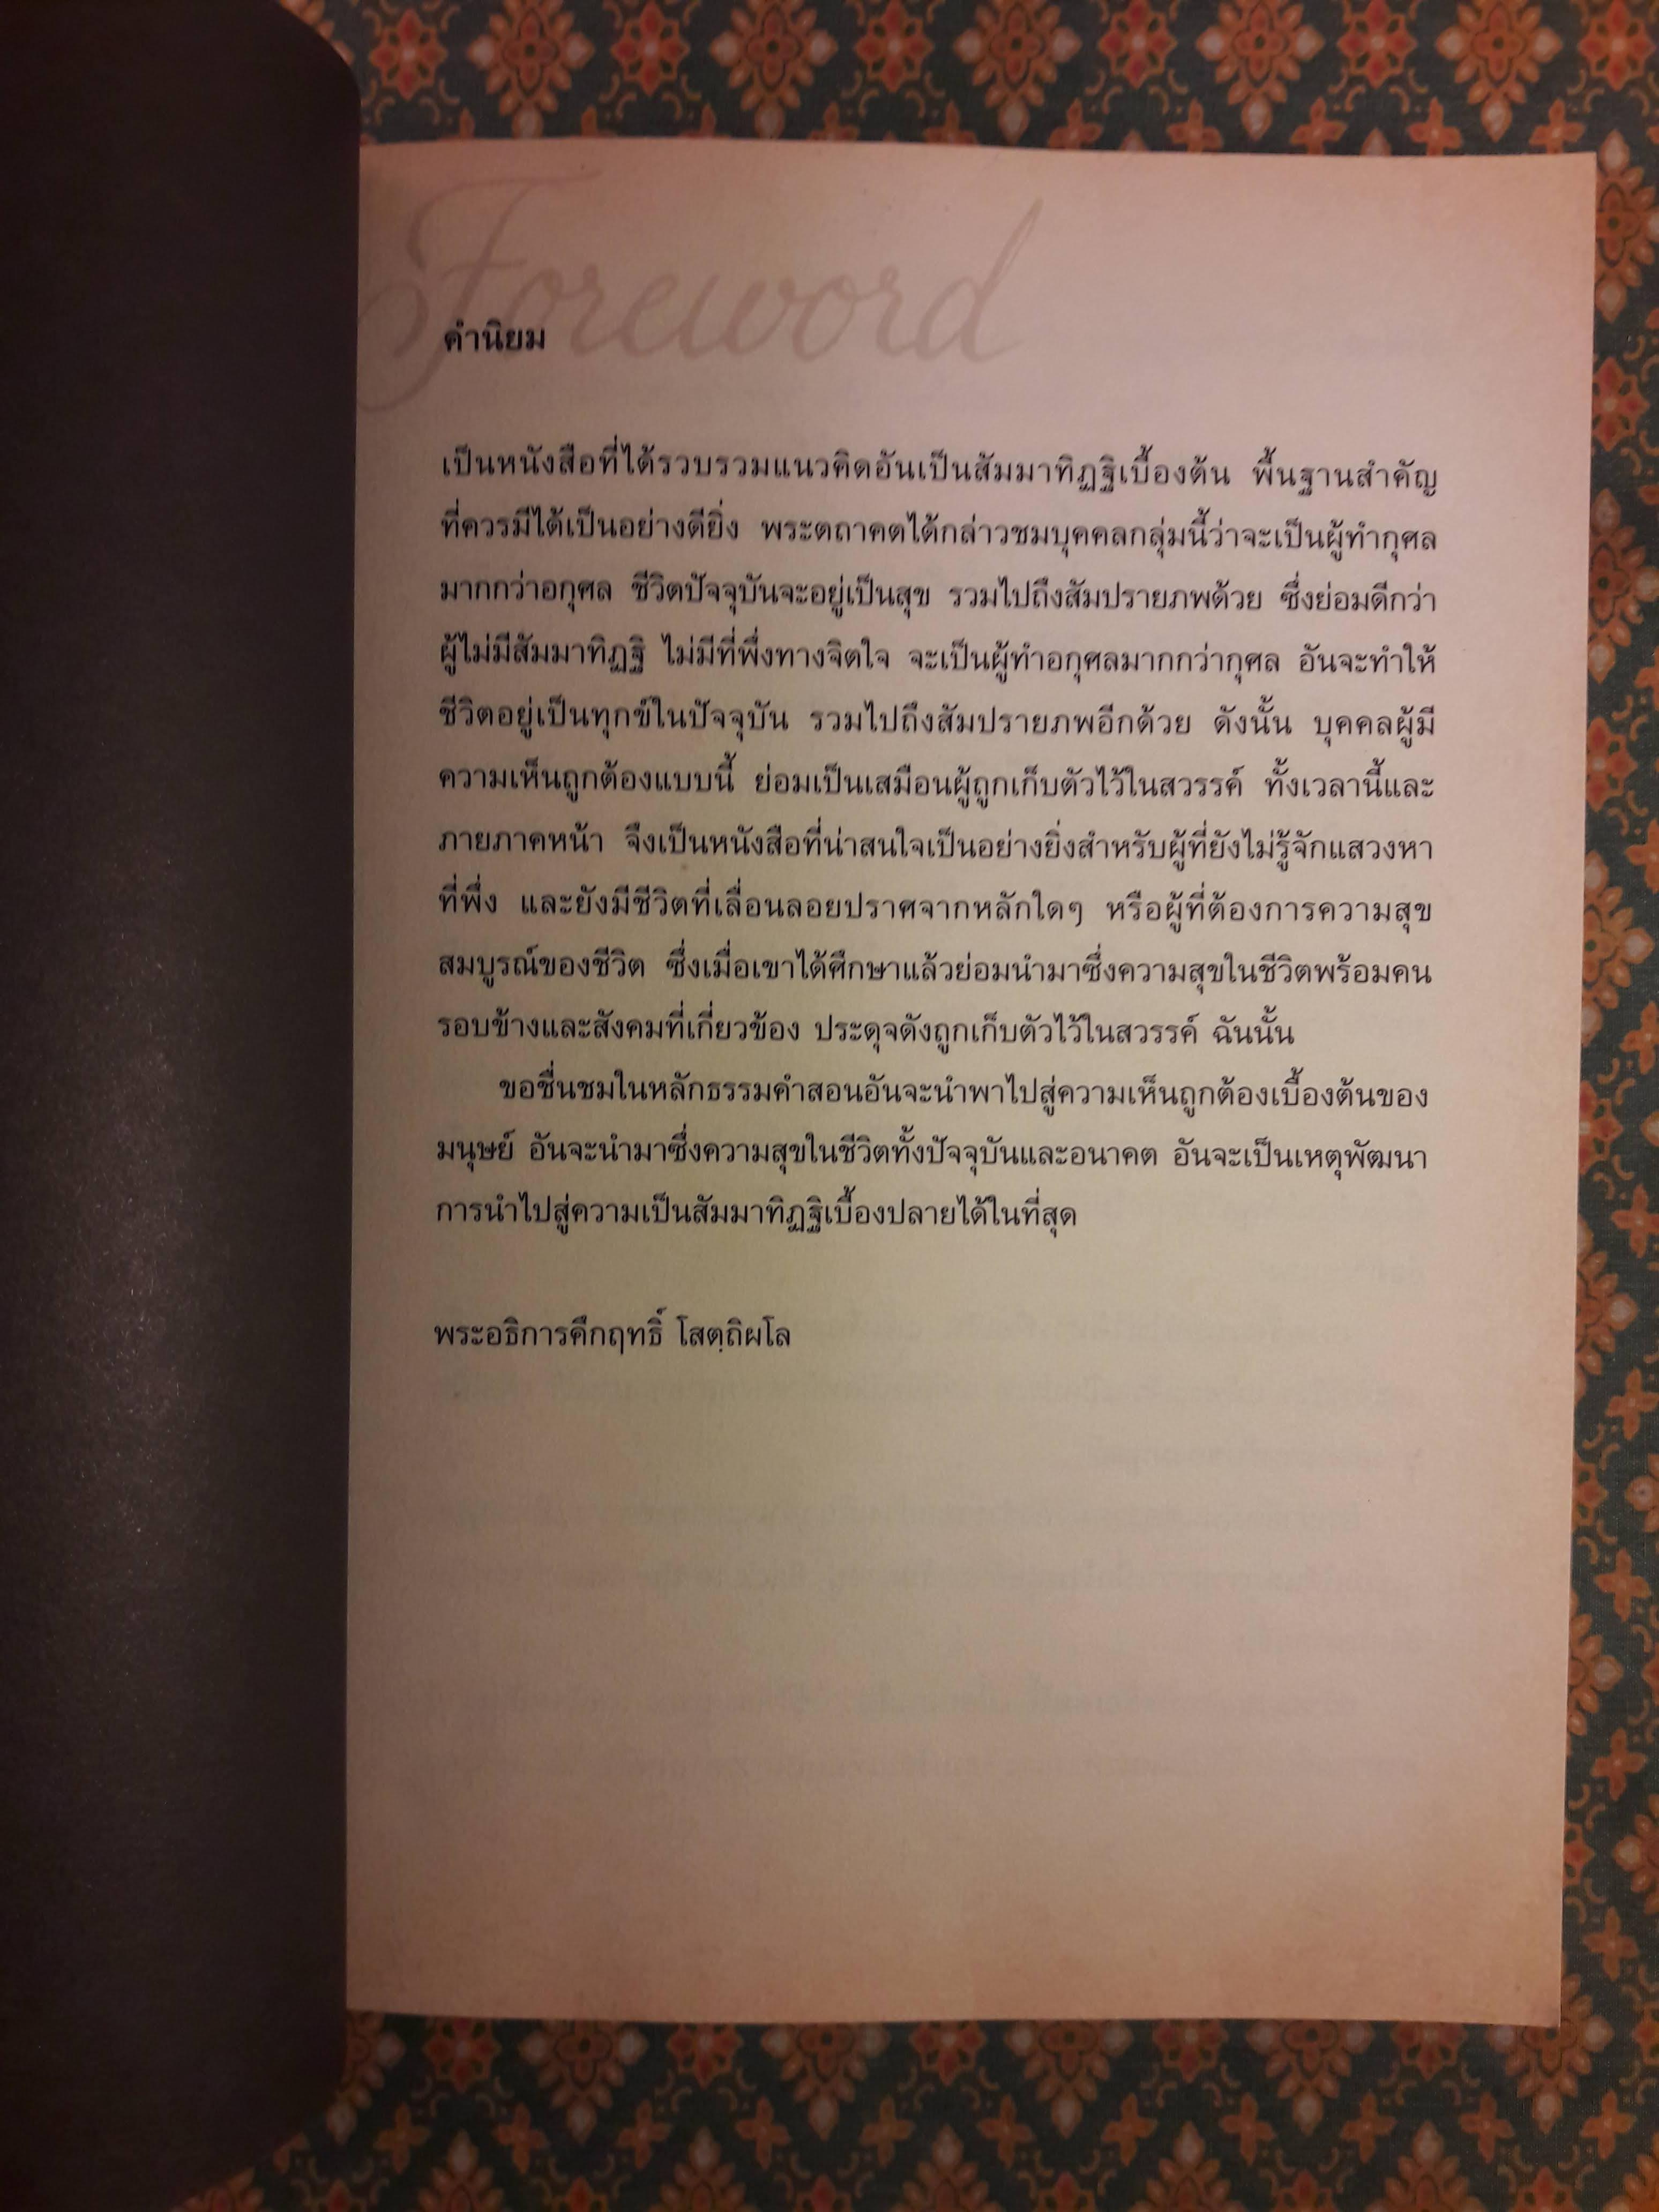 Foreword
คำนิยม
เป็นหนังสือที่ได้รวบรวมแนวคิดอันเป็นสัมมาทิฏฐิเบื้องต้น พื้นฐานสำคัญ
ที่ควรมีได้เป็นอย่างดียิ่ง พระตถาคตได้กล่าวชมบุคคลกลุ่มนี้ว่าจะเป็นผู้ทำกุศล
มากกว่าอกุศล ชีวิตปัจจุบันจะอยู่เป็นสุข รวมไปถึงสัมปรายภพด้วย ซึ่งย่อมดีกว่า
ผู้ไม่มีสัมมาทิฏฐิ ไม่มีที่พึ่งทางจิตใจ จะเป็นผู้ทำอกุศลมากกว่ากุศล อันจะทำให้
ชีวิตอยู่เป็นทุกข์ในปัจจุบัน รวมไปถึงสัมปรายภพอีกด้วย ดังนั้น บุคคลผู้มี
ความเห็นถูกต้องแบบนี้ ย่อมเป็นเสมือนผู้ถูกเก็บตัวไว้ในสวรรค์ ทั้งเวลานี้และ
ภายภาคหน้า จึงเป็นหนังสือที่น่าสนใจเป็นอย่างยิ่งสำหรับผู้ที่ยังไม่รู้จักแสวงหา
ที่พึ่ง และยังมีชีวิตที่เลื่อนลอยปราศจากหลักใดๆ หรือผู้ที่ต้องการความสุข
สมบูรณ์ของชีวิต ซึ่งเมื่อเขาได้ศึกษาแล้วย่อมนำมาซึ่งความสุขในชีวิตพร้อมคน
รอบข้างและสังคมที่เกี่ยวข้อง ประดุจดังถูกเก็บตัวไว้ในสวรรค์ ฉันนั้น
ขอชื่นชมในหลักธรรมคำสอนอันจะนำพาไปสู่ความเห็นถูกต้องเบื้องต้นของ
มนุษย์ อันจะนำมาซึ่งความสุขในชีวิตทั้งปัจจุบันและอนาคต อันจะเป็นเหตุพัฒนา
การนำไปสู่ความเป็นสัมมาทิฏฐิเบื้องปลายได้ในที่สุด
พระอธิการคึกฤทธิ์ โสตฺถิผโล